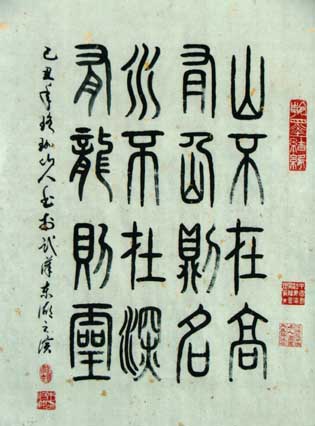 山不在高
有仙則名
水不在深
有龍則靈
己丑年珞珈山人書於武漢東湖之濱